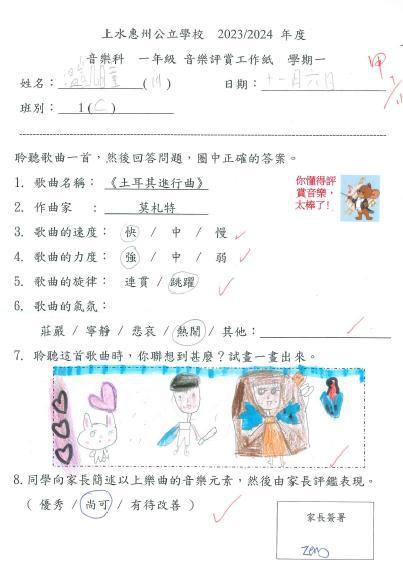 上水惠州公立學校 2023/2024 年度
音樂科 一年級 音樂評賞工作紙 學期一
甲
姓名: (11) 日期: 十一月六日
班別: 1(C)
聆聽歌曲一首,然後回答問題,圈中正確的答案。
1. 歌曲名稱: 《土耳其進行曲》
你懂得評
賞音樂,
太棒了!
2. 作曲家 : 莫札特
3. 歌曲的速度: 快 / 中 / 慢
4. 歌曲的力度: 強 / 中 / 弱
5. 歌曲的旋律: 連貫 / 跳躍
6. 歌曲的氣氛:
莊嚴 / 寧靜 / 悲哀 / 熱鬧 / 其他:
7. 聆聽這首歌曲時,你聯想到甚麼?試畫一畫出來。
8. 同學向家長簡述以上樂曲的音樂元素,然後由家長評鑑表現。
( 優秀 / 尚可 / 有待改善 )
家長簽署
zeno